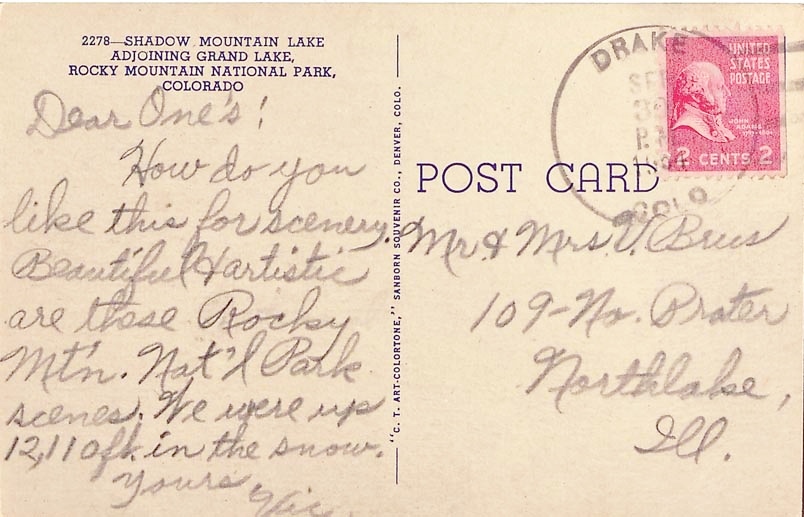 2278—SHADOW MOUNTAIN LAKE
ADJOINING GRAND LAKE,
ROCKY MOUNTAIN NATIONAL PARK,
COLORADO
Dear One's!
How do you
like this for scenery.
Beautiful & artistic
are these Rocky
Mt'n. Nat'l Park
scenes. We were up
12,110 ft. in the snow.
Yours
Vic
"C. T. ART-COLORTONE," SANBORN SOUVENIR CO., DENVER, COLO.
POST CARD
DRAKE
SEP
P.M
COLO
UNITED
STATES
POSTAGE
JOHN
ADAMS
2 CENTS 2
Mr & Mrs V. Brus
109-No. Prater
Northlake,
Ill.